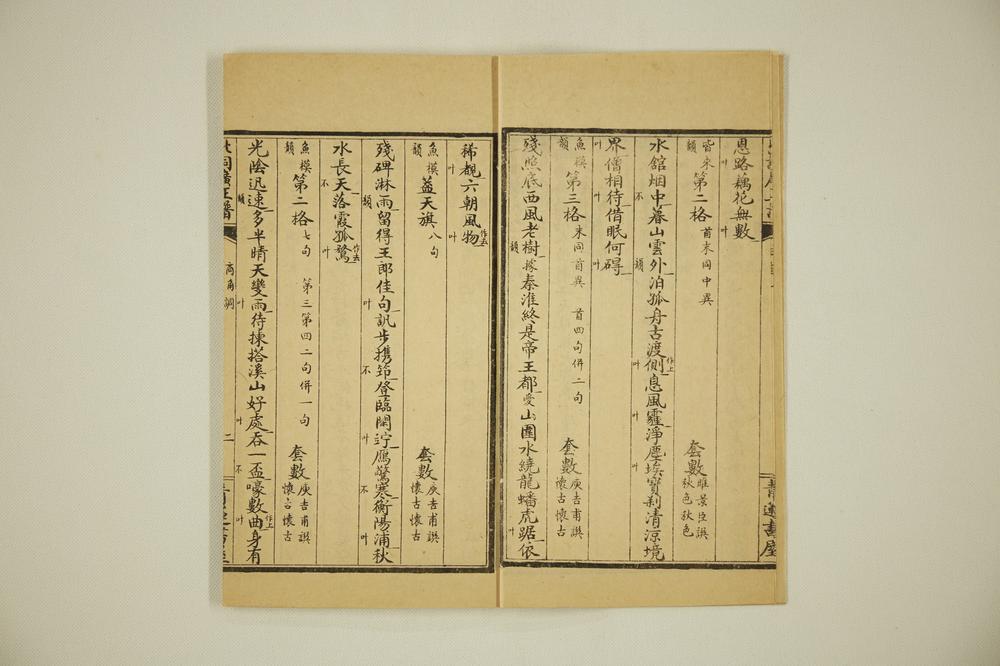 恩路藕花無數
皆來韻 第二格 首末同中異 套數 睢景臣譔 秋色秋色
水館烟中暮山雲外泊孤舟古渡側息風霾淨塵埃寶刹清涼境
界僧相待借眠何碍
魚模韻 第三格 末同首異 首四句併二句 套數 庾吉甫譔 懷古懷古
殘照底西風老樹據秦淮終是帝王都愛山圍水繞龍蟠虎踞依
稀覩六朝風物
魚模韻 蓋天旗 八句 套數 庾吉甫譔 懷古懷古
殘碑淋雨留得王郎佳句訊步携筇登臨閑竚鴈驚寒衡陽浦秋
水長天落霞孤鶩
魚模韻 第二格 七句 第三第四二句併一句 套數 庾吉甫譔 懷古懷古
光陰迅速多半晴天變雨待揀搭溪山好處吞一盃嚎數曲身有
商角調 二